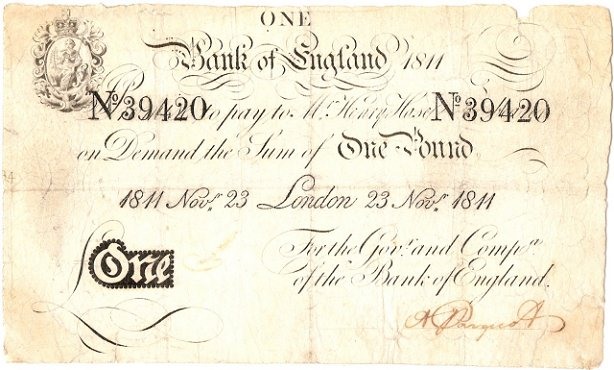 ONE
Bank of England 1811
No 39420 to pay to Mr. Henry Hase No 39420
on Demand the Sum of One Pound
1811 Novr. 23 London 23 Novr. 1811
For the Govr. and Compa.
of the Bank of England.
£One